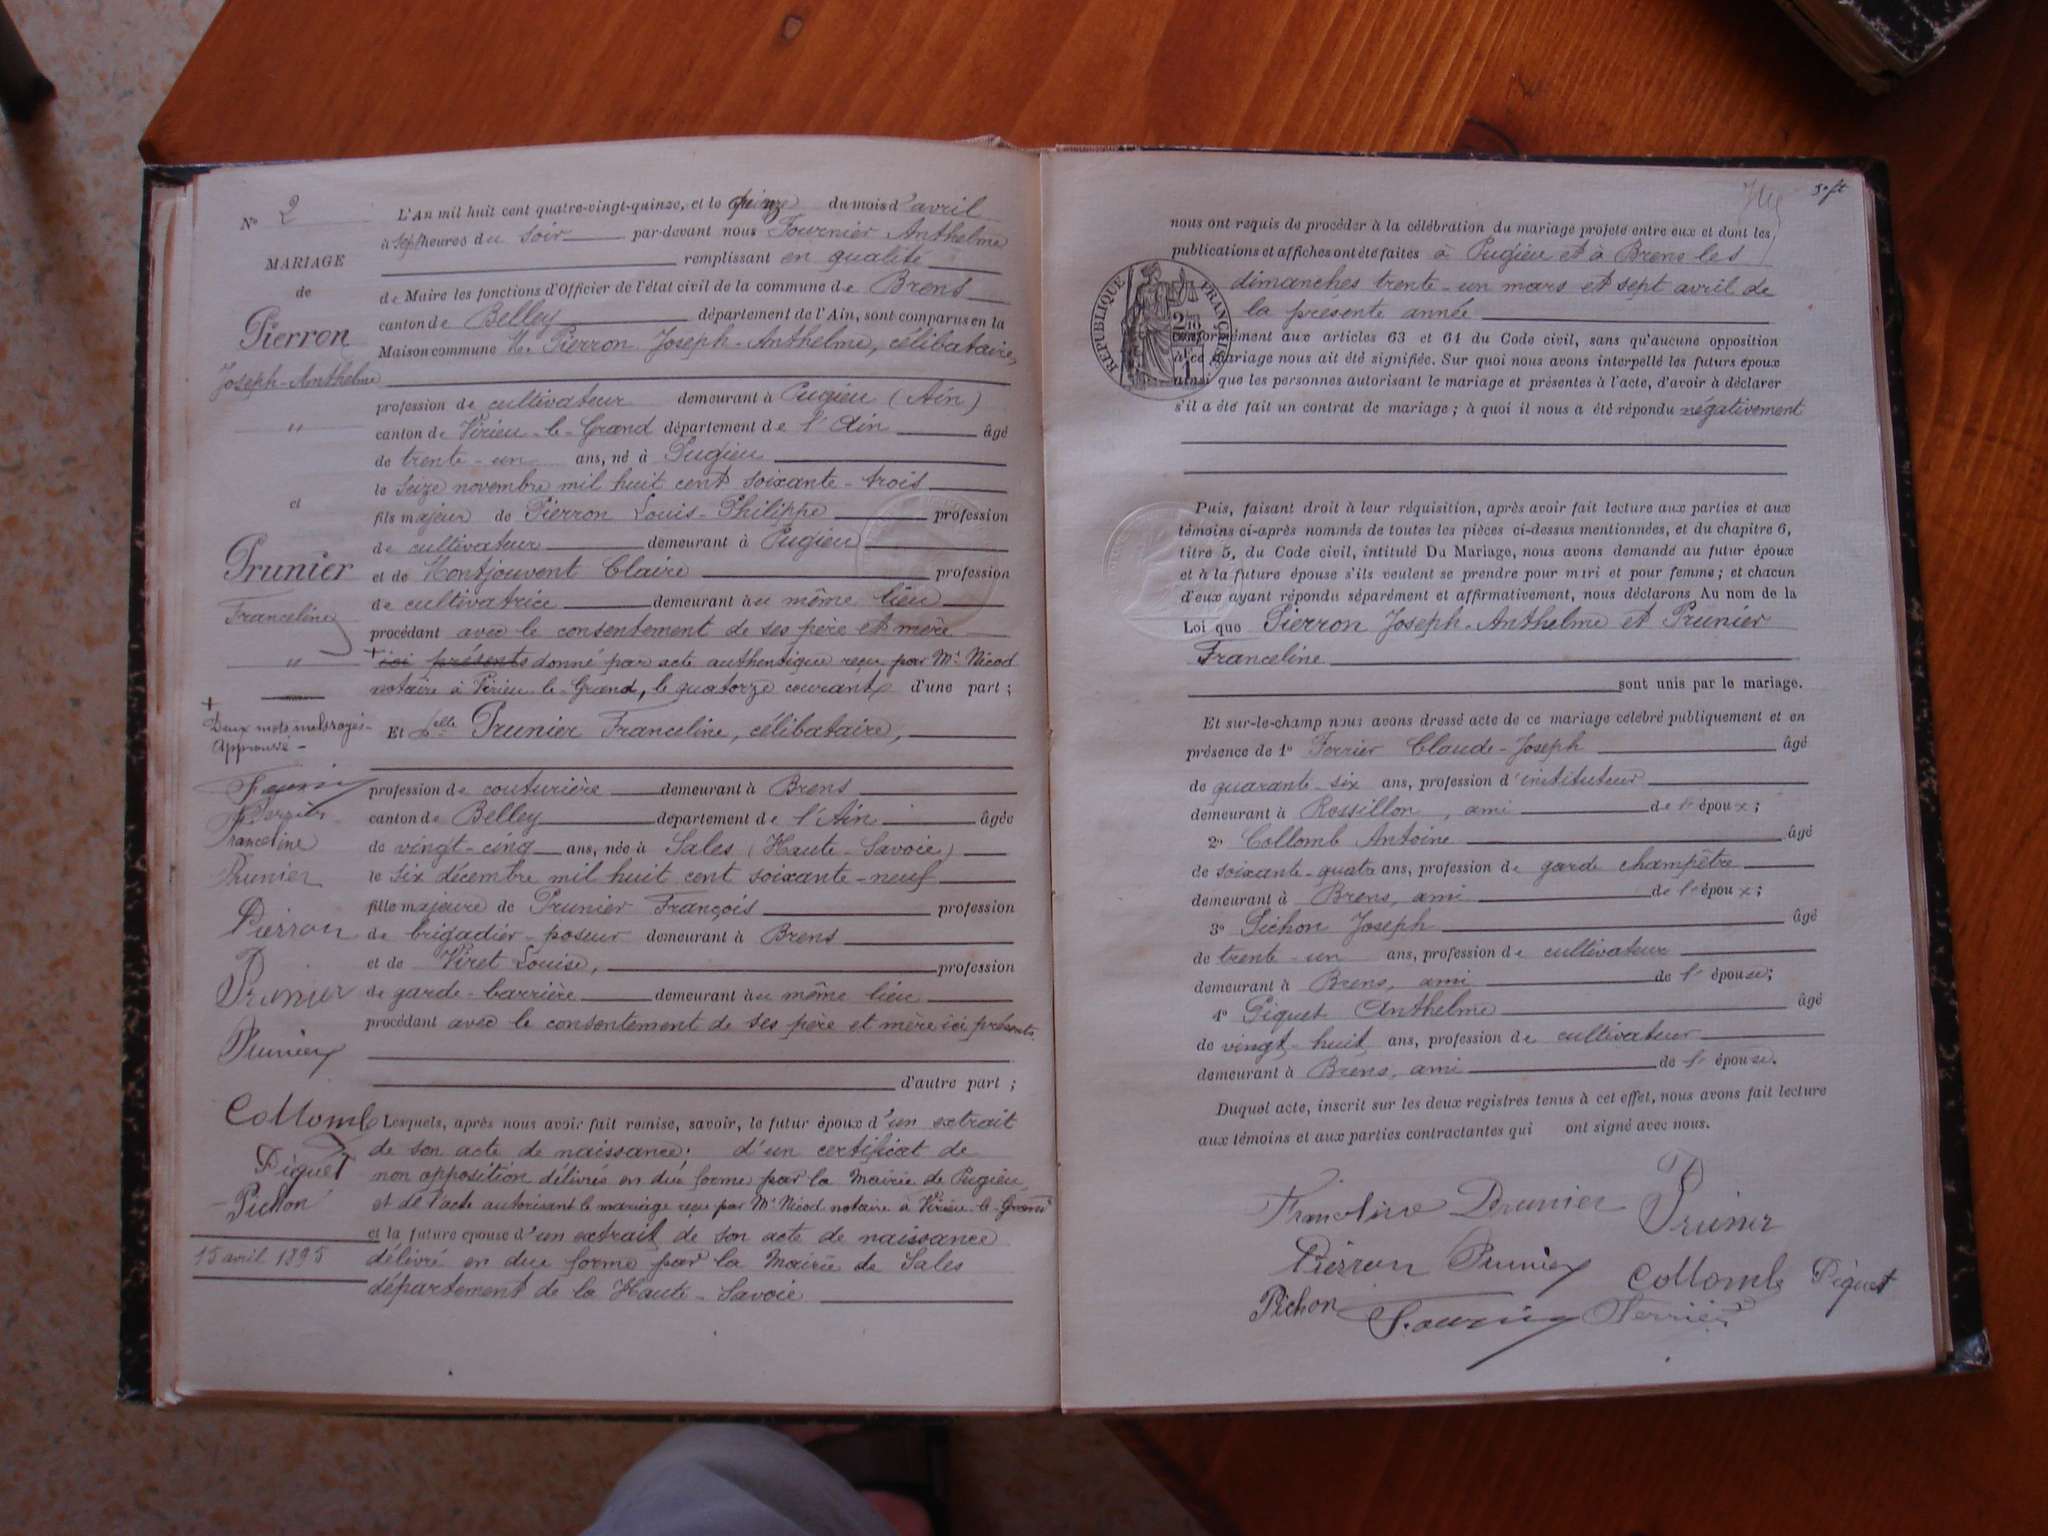 N° 2
MARIAGE
de
Pierron
Joseph-Anthelme
"
et
Prunier
Franceline
"
+
Deux mots mots rayés
Approuvé -
Franceline
Prunier
Pierron
Prunier
Prunier
Collomb
Piquet
Pichon
15 avril 1895
L'An mil huit cent quatre-vingt-quinze, et le quinze du mois d'avril
à sept heures du soir par-devant nous Fournier Anthelme
remplissant en qualité
de Maire les fonctions d'Officier de l'état civil de la commune de Brens
canton de Belley département de l'Ain, sont comparus en la
Maison commune M. Pierron Joseph-Anthelme, célibataire,
profession de cultivateur demeurant à Pugieu (Ain)
canton de Virieu-le-Grand département de l'Ain âgé
de trente-un ans, né à Pugieu
le seize novembre mil huit cent soixante-trois
fils majeur de Pierron Louis-Philippe profession
de cultivateur demeurant à Pugieu
et de Montjouvent Claire profession
de cultivatrice demeurant au même lieu
procédant avec le consentement de ses père et mère
+ ici présents donné par acte authentique reçu par Me Nicod
notaire à Virieu-le-Grand, le quatorze courant d'une part ;
Et Delle Prunier Franceline, célibataire,
profession de couturière demeurant à Brens
canton de Belley département de l'Ain âgée
de vingt-cinq ans, née à Sales (Haute-Savoie)
le six décembre mil huit cent soixante-neuf
fille majeure de Prunier François profession
de brigadier-poseur demeurant à Brens
et de Viret Louise, profession
de garde-barrière demeurant au même lieu
procédant avec le consentement de ses père et mère ici présents
d'autre part ;
Lesquels, après nous avoir fait remise, savoir, le futur époux d'un extrait
de son acte de naissance ; d'un certificat de
non opposition délivrés en due forme par la Mairie de Pugieu,
et de l'acte autorisant le mariage reçu par Me Nicod notaire à Virieu-le-Grand
et la future épouse d'un extrait de son acte de naissance
délivré en due forme par la Mairie de Sales
département de la Haute-Savoie
nous ont requis de procéder à la célébration du mariage projeté entre eux et dont les
publications et affiches ont été faites à Pugieu et à Brens les
dimanches trente-un mars et sept avril de
la présente année
RÉPUBLIQUE FRANÇAISE
conformément aux articles 63 et 64 du Code civil, sans qu'aucune opposition
à ce mariage nous ait été signifiée. Sur quoi nous avons interpellé les futurs époux
ainsi que les personnes autorisant le mariage et présentes à l'acte, d'avoir à déclarer
s'il a été fait un contrat de mariage ; à quoi il nous a été répondu négativement
Puis, faisant droit à leur réquisition, après avoir fait lecture aux parties et aux
témoins ci-après nommés de toutes les pièces ci-dessus mentionnées, et du chapitre 6,
titre 5, du Code civil, intitulé Du Mariage, nous avons demandé au futur époux
et à la future épouse s'ils veulent se prendre pour mari et pour femme ; et chacun
d'eux ayant répondu séparément et affirmativement, nous déclarons Au nom de la
Loi que Pierron Joseph-Anthelme et Prunier
Franceline
sont unis par le mariage.
Et sur-le-champ nous avons dressé acte de ce mariage célébré publiquement et en
présence de 1° Ferrier Claude-Joseph âgé
de quarante-six ans, profession d'instituteur
demeurant à Rossillon, ami de l'époux ;
2° Collomb Antoine âgé
de soixante-quatre ans, profession de garde champêtre
demeurant à Brens, ami de l'époux ;
3° Pichon Joseph âgé
de trente-un ans, profession de cultivateur
demeurant à Brens, ami de l'épouse ;
4° Piquet Anthelme âgé
de vingt-huit ans, profession de cultivateur
demeurant à Brens, ami de l'épouse.
Duquel acte, inscrit sur les deux registres tenus à cet effet, nous avons fait lecture
aux témoins et aux parties contractantes qui ont signé avec nous.
Franceline Prunier Prunier
Pierron Prunier Collomb Piquet
Pichon Ferrier